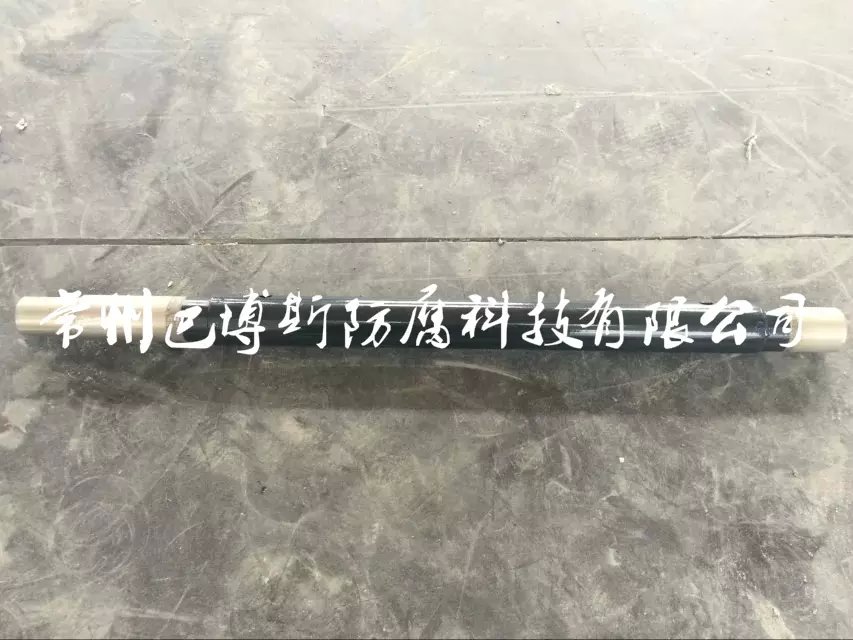 常州巴博斯防腐科技有限公司